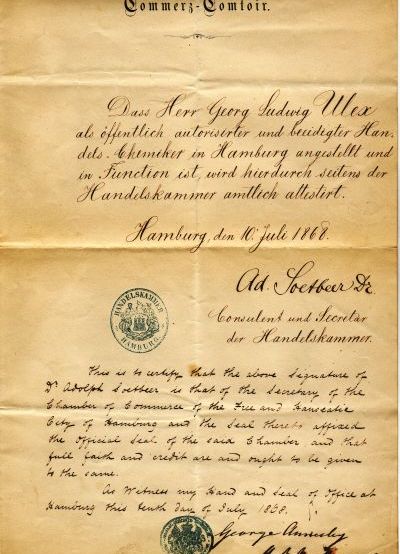 Commerz-Comtoir.
Dass Herr Georg Ludwig Ulex
als öffentlich autorisirter und beeidigter Han-
dels-Chemiker in Hamburg angestellt und
in Function ist, wird hierdurch seitens der
Handelskammer amtlich attestirt.
Hamburg, den 10. Juli 1868.
Ad. Soetbeer Dr.
Consulent und Secretär
der Handelskammer.
HANDELSKAMMER
HAMBURG
This is to certify that the above signature of
Dr Adolph Soetbeer is that of the Secretary of the
Chamber of Commerce of the Free and Hanseatic
City of Hamburg and the Seal thereto affixed
the Official Seal of the said Chamber and that
full faith and credit are and ought to be given
to the same.
As Witness my Hand and Seal of Office at
Hamburg this tenth day of July 1868.
George Annesley